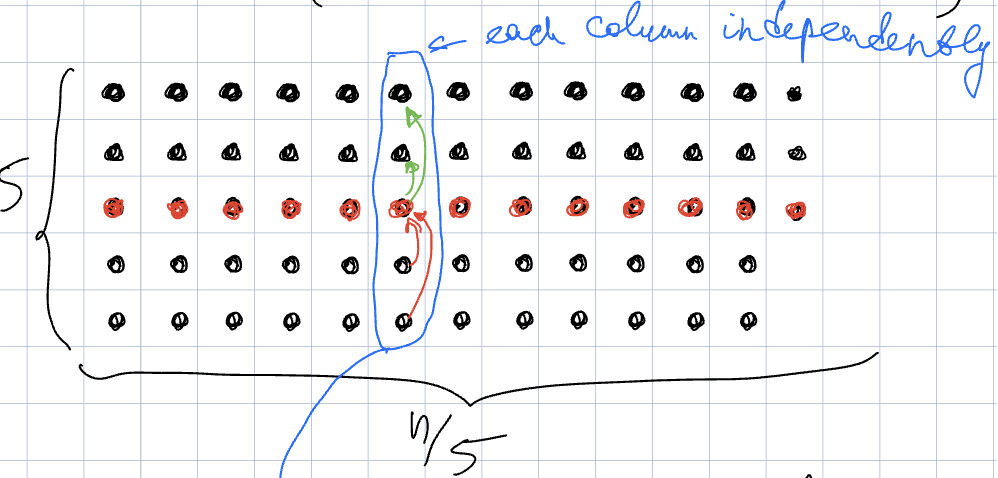 ← each column independently
5
n/5